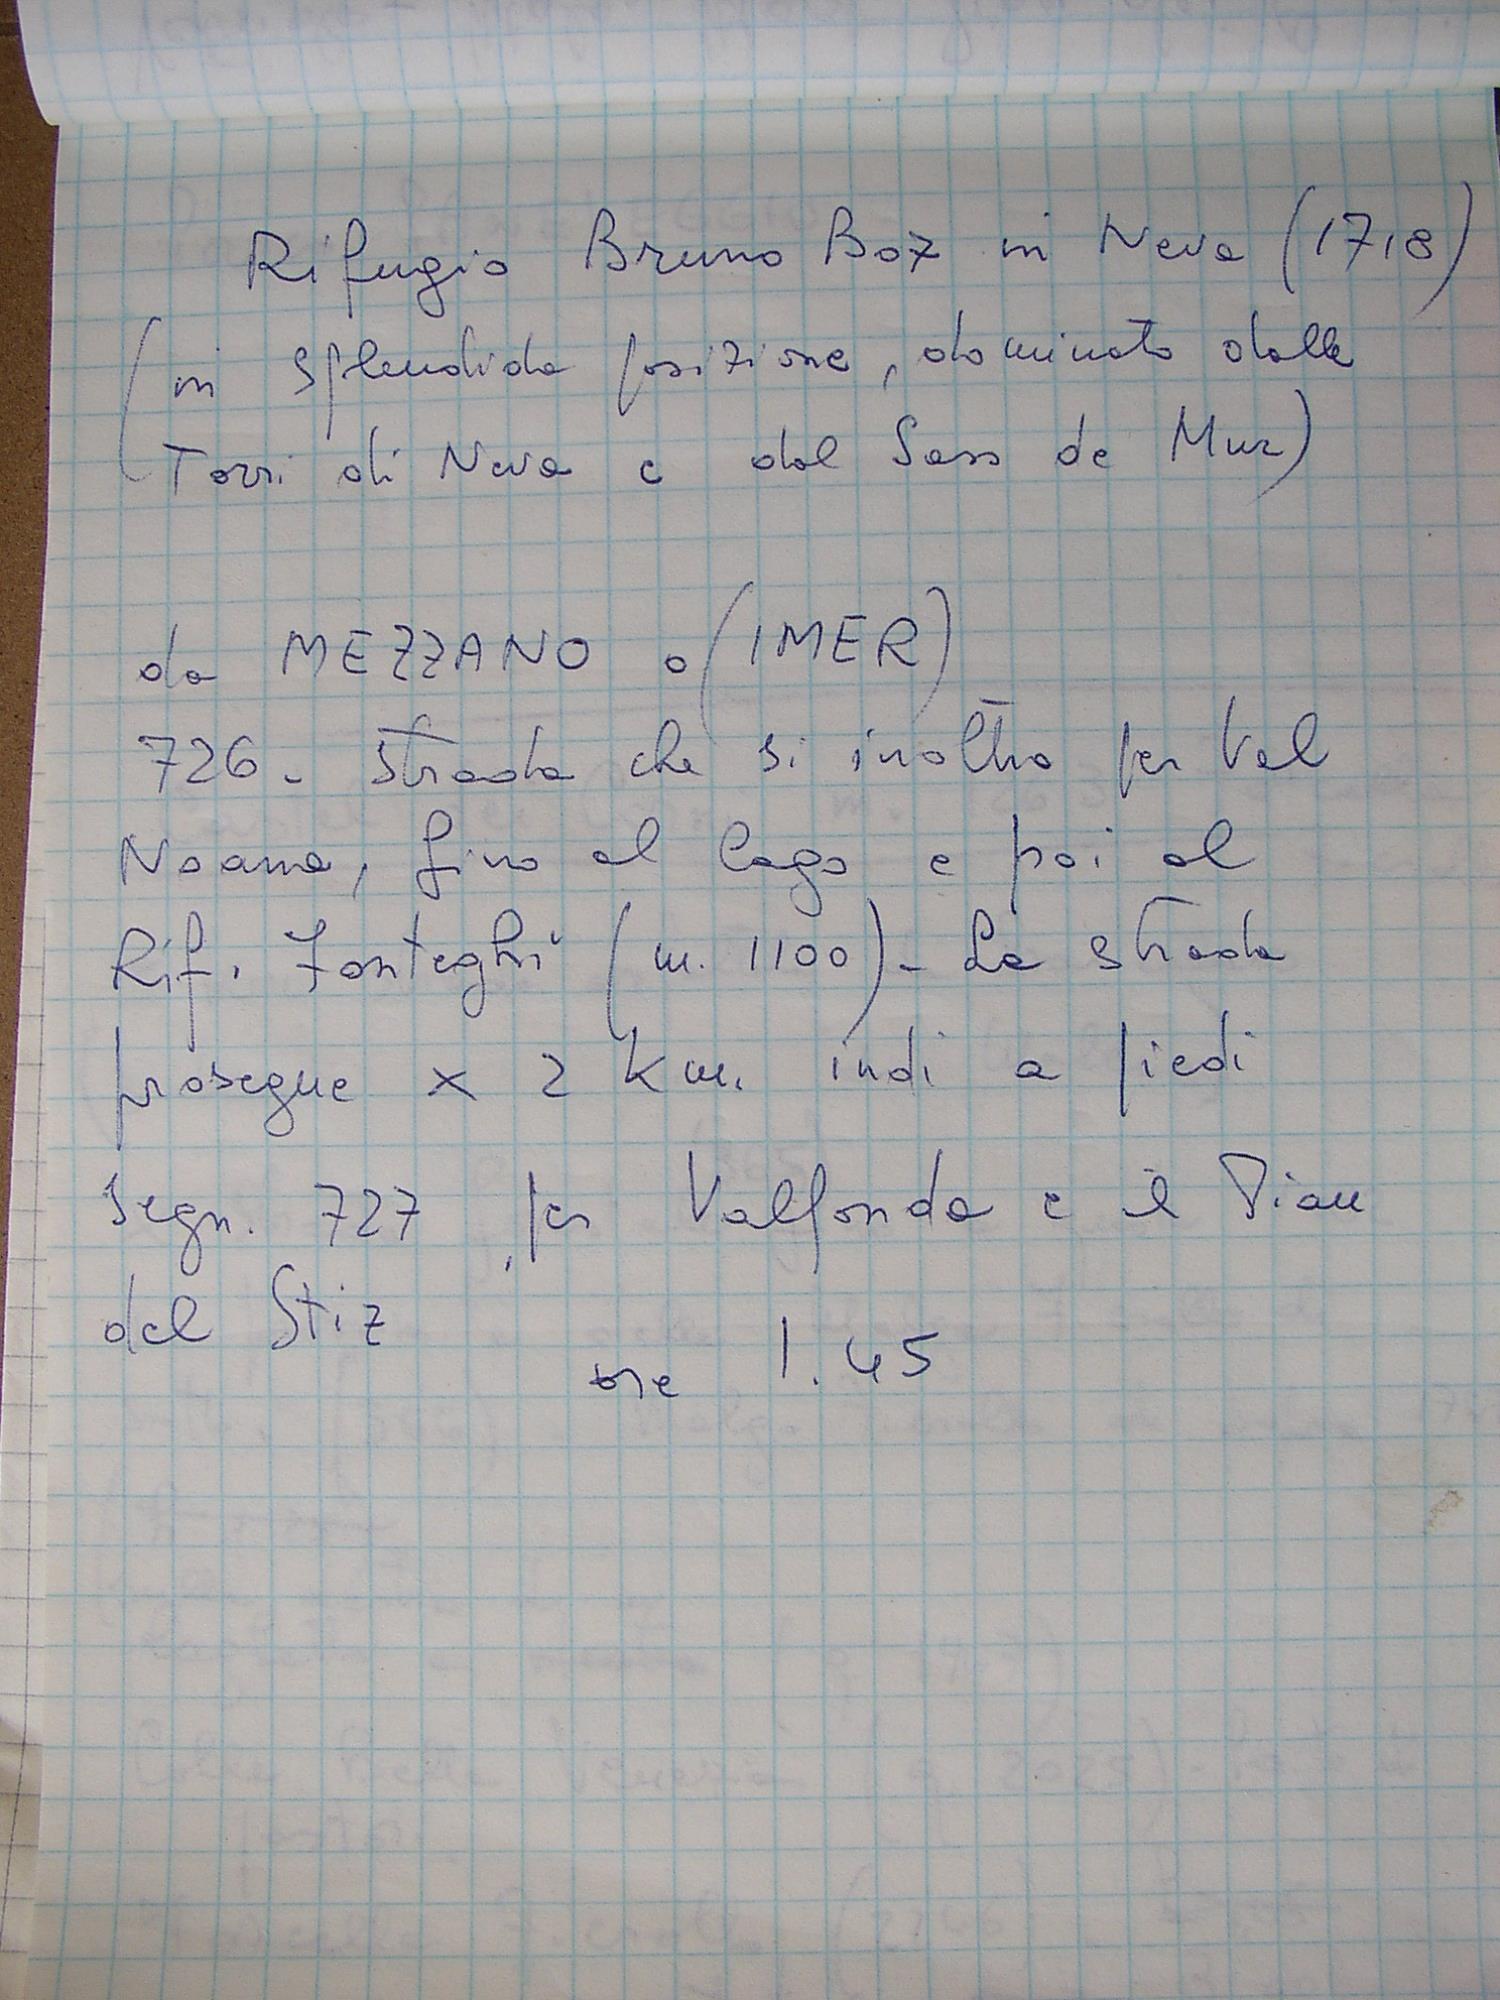 Rifugio Bruno Boz in Neva (1718)
(in splendida posizione, dominato dalle
Torri di Neva e dal Sass de Mur)
da MEZZANO o (IMER)
726 - strada che si inoltra per Val
Noana, fino al lago e poi al
Rif. Fonteghi (m. 1100) - La strada
prosegue x 2 km. indi a piedi
segn. 727 per Valfonda e il Pian
del Stiz
ore 1.45